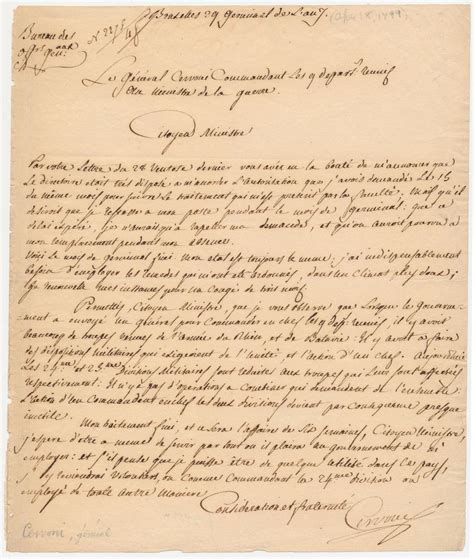 Bruxelles 29 Germinal de l'an 7. (Apr 18, 1799)
Bureau des
off.rs gen.aux
N. 2275
Le Général Cervoni Commandant les 9 depart. réunis
Au Ministre de la guerre.
Citoyen Ministre
Par votre Lettre du 28 Ventose dernier vous avez eu la bonté de m'annoncer que
Le directoire était très disposé à m'accorder l'autorisation que j'avois demandée le 15
du même mois pour suivre le traitement qui m'est prescrit par la faculté. Mais qu'il
désiroit que je reprisse à mon poste pendant le mois de germinal, que ce
délai expiré, je n'aurais qu'à rappeller ma demande, et qu'on auroit pourvu à
mon remplacement pendant mon absence.
Voici le mois de germinal fini. Mon état est toujours le même; j'ai indispensablement
besoin d'employer les remedes qui m'ont été ordonnés, dans un climat plus doux;
je renouvelle mes instances pour un congé de trois mois.
Permettez, Citoyen Ministre, que je vous observe que lorsque le gouverne-
-ment a envoyé un général pour commander en chef les 9 dep. réunis, il y avoit
beaucoup de troupes venues de l'armée du Rhin et de Batavie. Il y avoit à faire
des dispositions militaires qui exigeoient de l'unité et l'action d'un chef. Aujourd'hui
Les 24me et 25me divisions militaires sont réduites aux troupes qui leur sont affectées
respectivement. Il n'y a pas d'opérations à combiner qui demandent de l'ensemble
L'action d'un commandant en chef les deux divisions devient par conséquent presque
inutile.
Mon traitement fini, et ce sera l'affaire de six semaines, Citoyen Ministre
j'espère d'être à même de servir par tout où il plaira au gouvernement de m'
employer; et s'il pense que je puisse être de quelque utilité dans ce pays,
j'y reviendrai volontiers, ou comme commandant la 24me division ou
employé de toute autre maniere.
Considération et fraternité
Cervoni
Cervoni, général